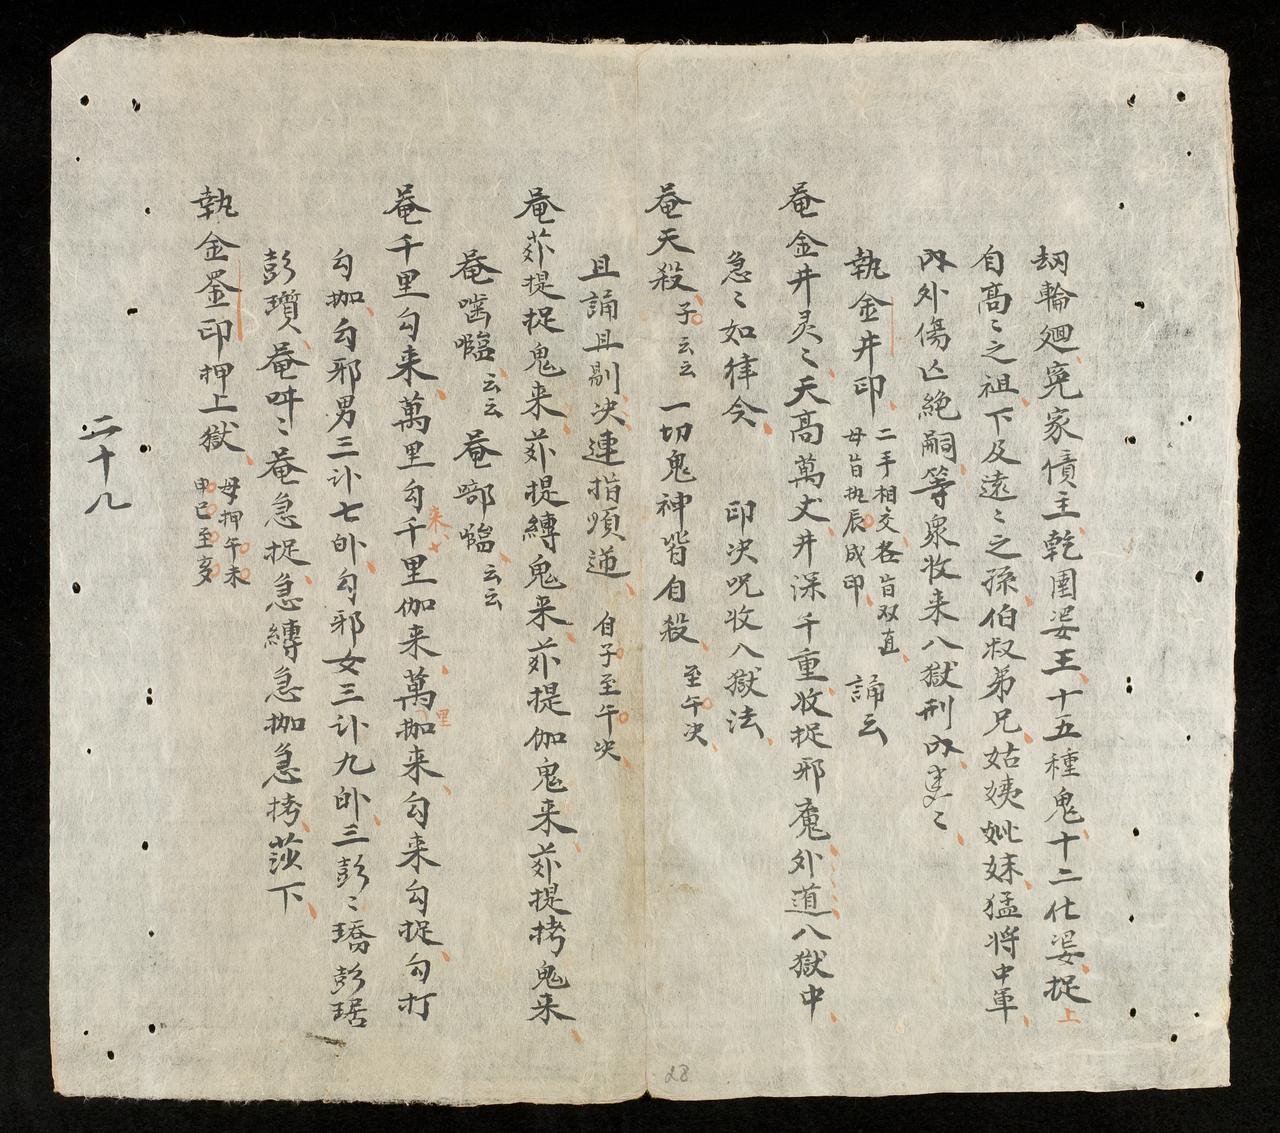 刼輪廻寃家債主乾圍婆王十五種鬼十二仕婆捉上
自高〻之祖下及遠〻之孫伯叔弟兄姑姨姊妹猛将中軍
內外傷亾絶嗣等衆收来八獄刑內〻
執金井印二手相交各旨双直
母旨执辰成印誦云
菴金井灵〻天高萬丈井深千重收捉邪魔外道八獄中
急〻如律令 印决呪收八獄法
菴天殺子云云一切鬼神皆自殺至午决
且誦且剔决連指順逆自子至午决
菴蒎提捉鬼来蒎提縛鬼来蒎提伽鬼来蒎提拷鬼来
菴噛𡃤云云菴啷𡃤云云
菴千里勾来萬里勾千里伽来萬里拁来勾来勾捉勾打
来
勾拁勾邪男三訃七𠨐勾邪女三訃九𠨐三彭〻璚彭琚
彭瓚菴吽〻菴急捉急縛急拁急拷莎下
執金罡印押上獄母押午未
申巳至亥
二十八
28